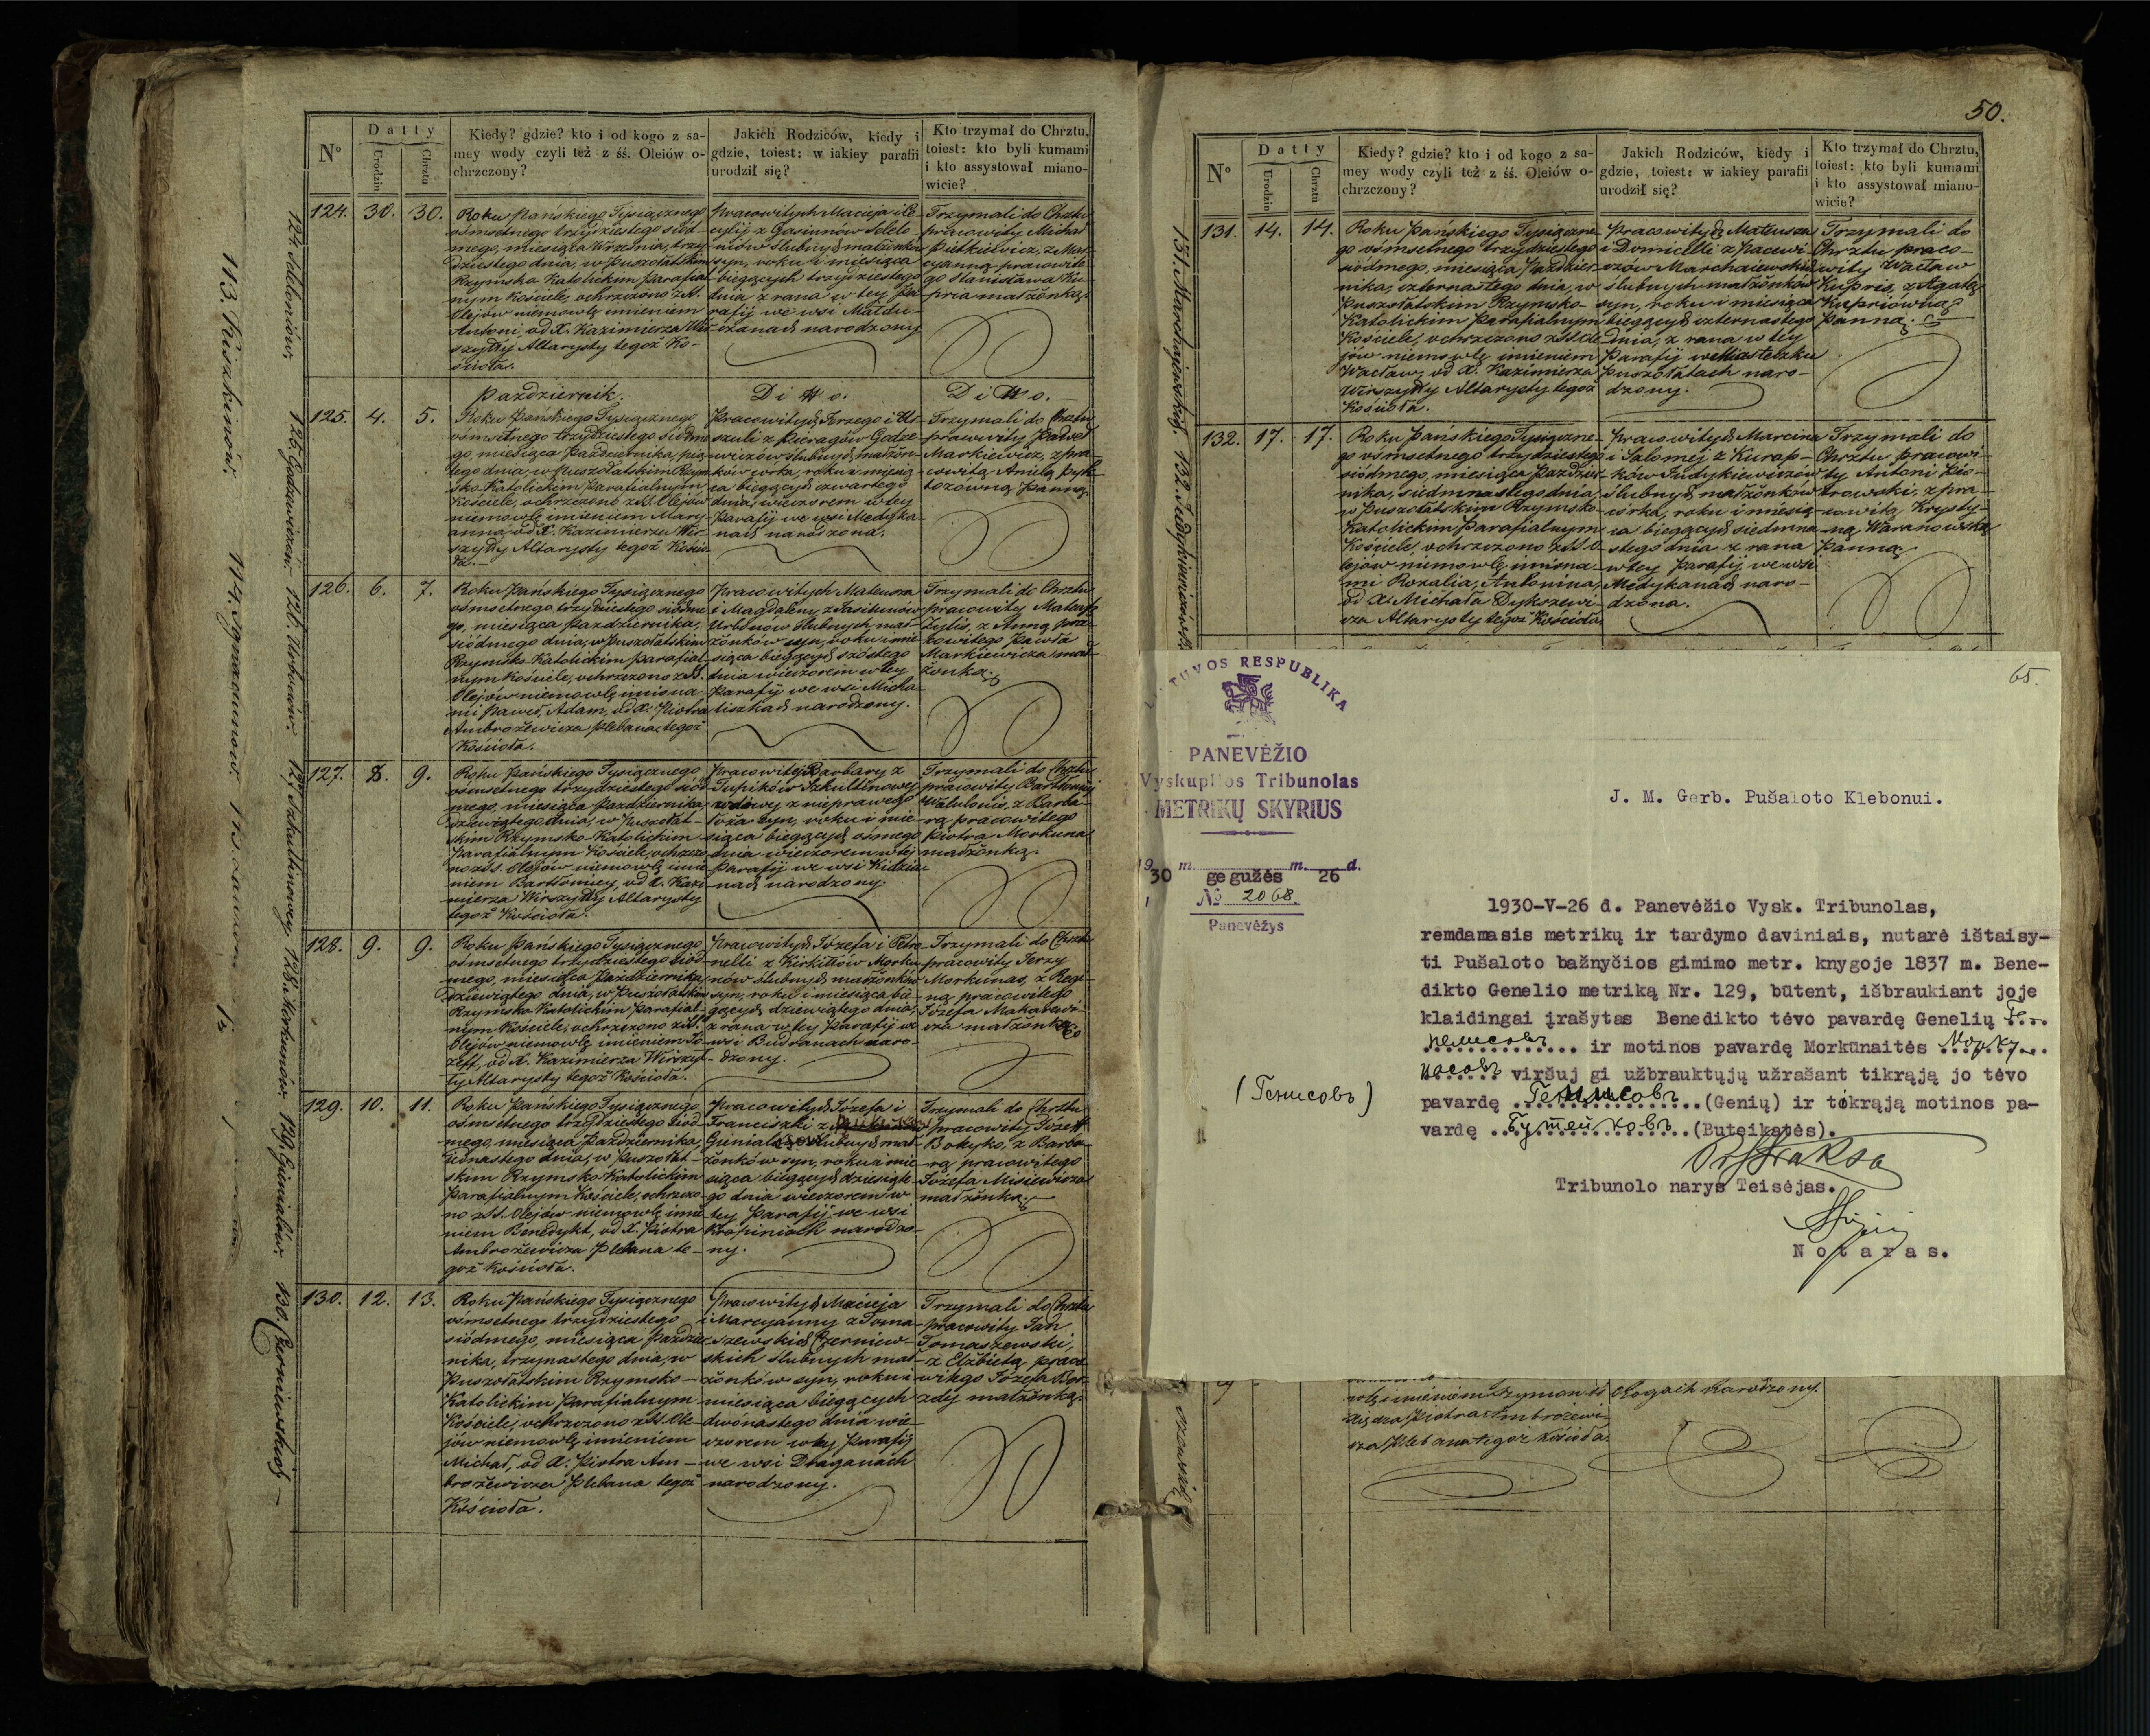 No
Datty
Urodzin
Chrztu
Kiedy? gdzie? kto i od kogo z sa-
mey wody czyli też z śś. Oleiów o-
chrzczony?
Jakich Rodziców, kiedy i
gdzie, toiest: w iakiey parafii
urodził się?
Kto trzymał do Chrztu,
toiest: kto byli kumami
i kto assystował miano-
wicie?
124. 30. 30.
Roku Pańskiego Tysiącznego
ośmsetnego trzydziestego siód-
mego, miesiąca Września, trzy-
dziestego dnia, w Puszołatskim
Rzymsko Katolickim Parafial-
nym Kościele, ochrzczono z S.
Olejów niemowlę imieniem
Antoni, od X. Kazimierza Wir-
szyłły Altarysty tegoż Ko-
ścioła.
Pracowitych Macieja i Ce-
cylij z Gasiunów Szlelo-
niów ślubnych małżonków
syn, roku i miesiąca
biegących trzydziestego
dnia z rana w tey Pa-
rafij we wsi
narodzony
Trzymali do Chrztu
pracowity Michał
Pietkiewicz, z Mar-
cyanną pracowite-
go Stanisława Ku-
pria małżonką.
Październik.
Ditto.
Ditto.
125. 4. 5.
Roku Pańskiego Tysiącznego
ośmsetnego trzydziestego siódme-
go, miesiąca Października, pią-
tego dnia, w Puszołatskim Rzym-
sko Katolickim Parafialnym
Kościele, ochrzczono z SS. Olejów
niemowlę imieniem Mary-
anna, od X. Kazimierza Wir-
szyłły Altarysty tegoż Kościo-
ła.
Pracowitych Jerzego i Ur-
szuli z Pieragów Godze-
wiczów ślubnych małżon-
ków córka, roku i miesią-
ca biegących czwartego
dnia, wieczorem w tey
Parafij we wsi Medyka-
nach narodzona.
Trzymali do Chrztu
pracowity Paweł
Markiewicz, z pra-
cowitą Anielą
Panną.
126. 6. 7.
Roku Pańskiego Tysiącznego
ośmsetnego trzydziestego siódme-
go, miesiąca Października,
siódmego dnia, w Puszołatskim
Rzymsko Katolickim Parafial-
nym Kościele, ochrzczono z S.
Olejów niemowlę imiona-
mi Paweł, Adam, od X. Piotra
Ambrożewicza Plebana tegoż
Kościoła.
Pracowitych Mateusza
i Magdaleny z Jasitunów
Urbonów ślubnych mał-
żonków syn, roku i mie-
siąca biegących szóstego
dnia wieczorem w tey
Parafij we wsi Micha-
liszkach narodzony.
Trzymali do Chrztu
pracowity Mateusz
Żylis, z Anną pra-
cowitego Pawła
Markiewicza mał-
żonką.
127. 8. 9.
Roku Pańskiego Tysiącznego
ośmsetnego trzydziestego siód-
mego, miesiąca Października,
dziewiątego dnia, w Puszołat-
skim Rzymsko-Katolickim
Parafialnym Kościele, ochrzczo-
no z S. Olejów niemowlę imie-
niem Bartłomiey, od X. Kazi-
mierza Wirszyłły Altarysty
tegoż Kościoła.
Pracowitej Barbary z
Tupików Szkultinowej
wdowy z nieprawego
łoża syn, roku i mie-
siąca biegących ósmego
dnia wieczorem w tej
Parafij we wsi
nach narodzony.
Trzymali do Chrztu
pracowity Bartłomiej
Watulonis, z Barba-
rą pracowitego
Piotra Morkuna
małżonką.
128. 9. 9.
Roku Pańskiego Tysiącznego
ośmsetnego trzydziestego siód-
mego, miesiąca Października
dziewiątego dnia, w Puszołatskim
Rzymsko Katolickim Parafial-
nym Kościele, ochrzczono z SS.
Olejów niemowlę imieniem Jó-
zeff, od X. Kazimierza Wirszył-
ły Altarysty tegoż Kościoła.
Pracowitych Józefa i Petro-
nelli z Kirkiłłów Morku-
nów ślubnych małżonków
syn, roku i miesiąca bie-
gących dziewiątego dnia,
z rana w tey Parafij we
wsi Budranach naro-
dzony.
Trzymali do Chrztu
pracowity Jerzy
Morkunas, z Regi-
ną pracowitego
Józefa Makarewi-
cza małżonką.
129. 10. 11.
Roku Pańskiego Tysiącznego
ośmsetnego trzydziestego siód-
mego, miesiąca Października,
jedenastego dnia, w Puszołat-
skim Rzymsko-Katolickim
Parafialnym Kościele, ochrzczo-
no z SS. Olejów niemowlę imie-
niem Benedykt, od X. Piotra
Ambrożewicza Plebana te-
goż Kościoła.
Pracowitych Józefa i
Franciszki z
ślubnych mał-
żonków syn, roku i mie-
siąca biegących dziesiąte-
go dnia wieczorem w
tey Parafij we wsi
narodzo-
ny.
Trzymali do Chrztu
pracowity Józeff
Bokyko, z Barba-
rą pracowitego
Józefa Misiewicza
małżonką.
130. 12. 13.
Roku Pańskiego Tysiącznego
ośmsetnego trzydziestego
siódmego, miesiąca Paździer-
nika, trzynastego dnia, w
Puszołatskim Rzymsko-
Katolickim Parafialnym
Kościele, ochrzczono z SS. Ole-
jów niemowlę imieniem
Michał, od X. Piotra Am-
brożewicza Plebana tegoż
Kościoła.
Pracowitych Macieja
i Marcyanny z Toma-
szewskich Czerniew-
skich ślubnych mał-
żonków syn, roku i
miesiąca biegących
dwónastego dnia wie-
czorem w tey Parafij
we wsi Draganach
narodzony.
Trzymali do Chrztu
pracowity Jan
Tomaszewski,
z Elżbietą praco-
witego Józefa
małżonką.
113.
114.
124.
125. Godzewiczów.
126. Urbonów.
127. Szkultinowey.
128. Morkunów.
129. Gienialów.
130. Czerniewskich
50.
No
Datty
Urodzin
Chrztu
Kiedy? gdzie? kto i od kogo z sa-
mey wody czyli też z śś. Oleiów o-
chrzczony?
Jakich Rodziców, kiedy i
gdzie, toiest: w iakiey parafii
urodził się?
Kto trzymał do Chrztu,
toiest: kto byli kumami
i kto assystował miano-
wicie?
131. 14. 14.
Roku Pańskiego Tysiączne-
go ośmsetnego trzydziestego
siódmego, miesiąca Paździer-
nika, czternastego dnia, w
Puszołatskim Rzymsko-
Katolickim Parafialnym
Kościele, ochrzczono z SS. Ole-
jów niemowlę imieniem
Wacław, od X. Kazimierza
Wirszyłły Altarysty tegoż
Kościoła.
Pracowitych Mateusza
i Domicelli z Pacewi-
czów Marchajewskich
ślubnych małżonków
syn, roku i miesiąca
biegących czternastego
dnia, z rana w tey
Parafij w Miasteczku
Puszołatach naro-
dzony.
Trzymali do
Chrztu praco-
wity Wacław
Kupris, z Agatą
Kupriówną
Panną.
132. 17. 17.
Roku Pańskiego Tysiączne-
go ośmsetnego trzydziestego
siódmego, miesiąca Paździer-
nika, siedmnastego dnia,
w Puszołatskim Rzymsko-
Katolickim Parafialnym
Kościele, ochrzczono z SS. O-
lejów niemowlę imiona-
mi Rozalia, Antonina,
od X. Michała Dykszewi-
cza Altarysty tegoż Kościoła.
Pracowitych Marcina
i Salomej z Kurap-
ków Judykiewiczów
ślubnych małżonków
córka, roku i miesią-
ca biegących siedmna-
stego dnia z rana
w tey Parafij we wsi
Medykanach naro-
dzona.
Trzymali do
Chrztu pracowi-
ty Antoni Pio-
trowski, z pra-
cowitą Krysty-
ną Waranowską
Panną.
131. Marchajewskich.
132. Judykiewiczów.
65.
LIETUVOS RESPUBLIKA
PANEVĖŽIO
Vyskupijos Tribunolas
METRIKŲ SKYRIUS
1930 m. gegužės m. 26 d.
№ 2068.
Panevėžys
J. M. Gerb. Pušaloto Klebonui.
1930-V-26 d. Panevėžio Vysk. Tribunolas,
remdamasis metrikų ir tardymo daviniais, nutarė ištaisy-
ti Pušaloto bažnyčios gimimo metr. knygoje 1837 m. Bene-
dikto Genelio metriką Nr. 129, būtent, išbraukiant joje
klaidingai įrašytas Benedikto tėvo pavardę Genelių Ге...
нелисовъ ir motinos pavardę Morkūnaitės Морку...
насовъ viršuj gi užbrauktųjų užrašant tikrąją jo tėvo
pavardę Генисовъ (Genių) ir tikrąją motinos pa-
vardę Бутейковъ (Buteikatės).
(Генисовъ)
Tribunolo narys Teisėjas.
Notaras.
Szymon od
Rogach narodzony.
Xiędza Piotra Ambrożewi-
cza Plebana tegoż Kościoła.